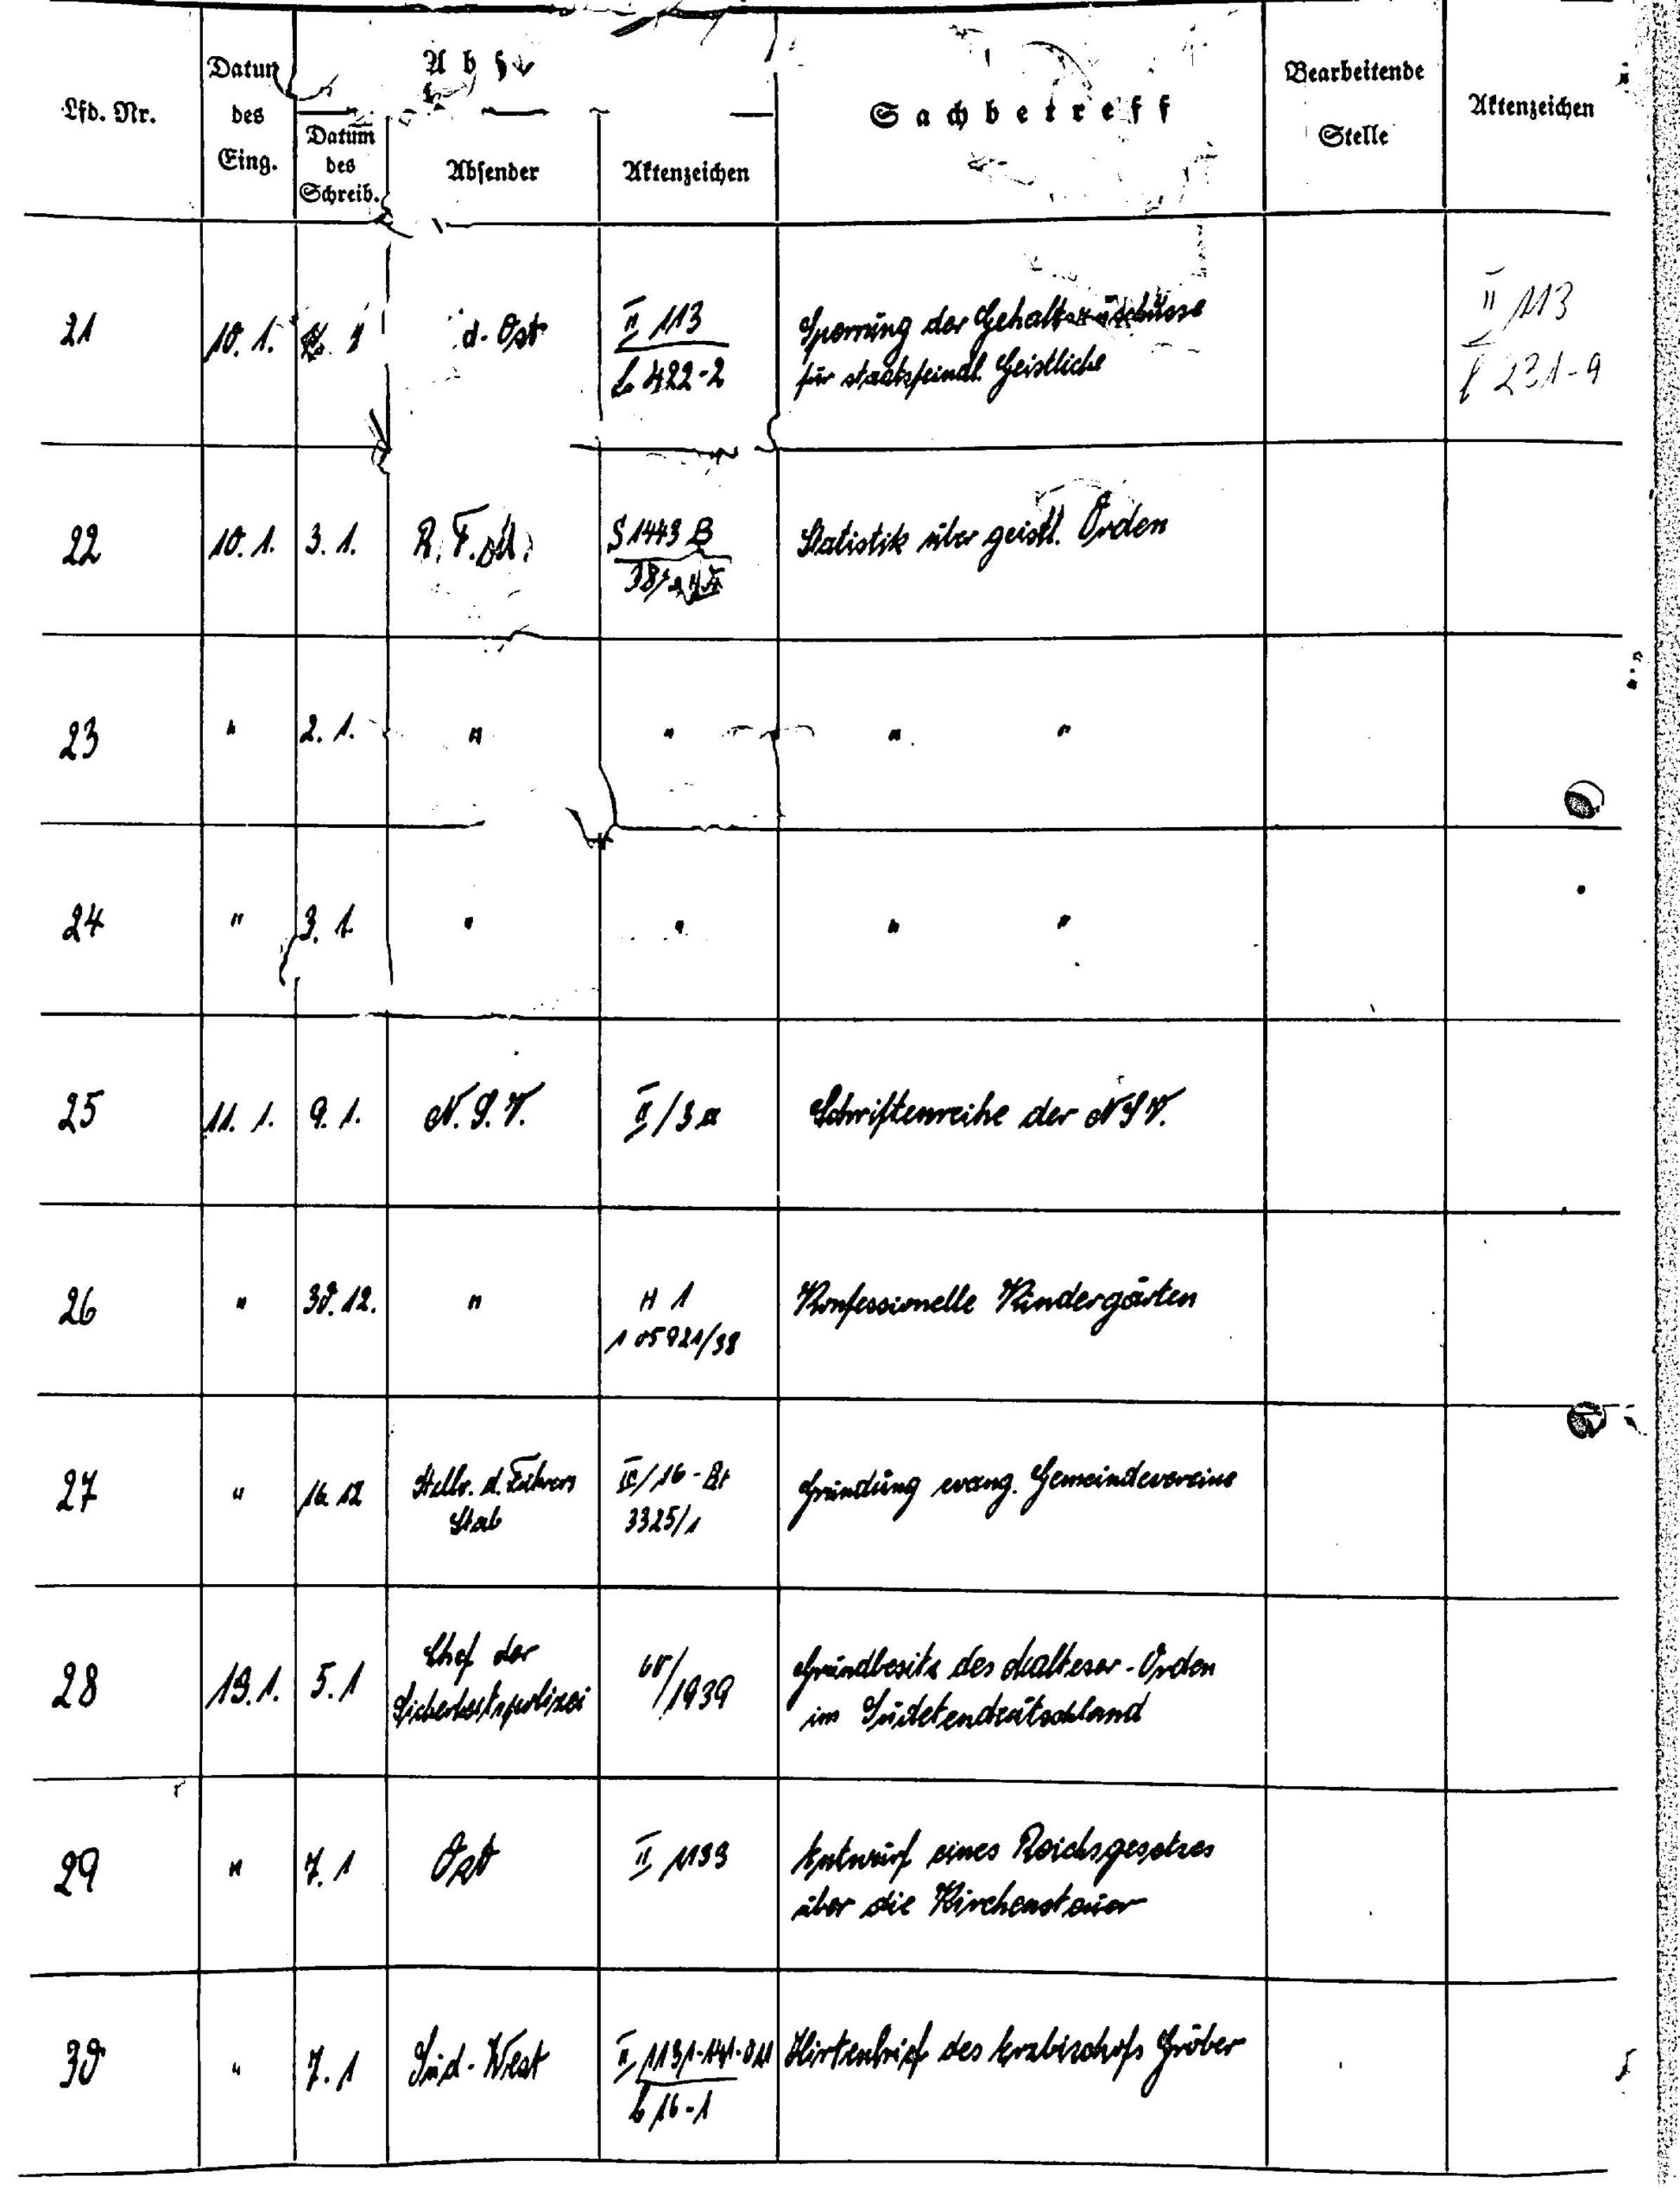 Lfd. Nr.
Datum
des
Eing.
Datum
des
Schreib.
Absender
Aktenzeichen
Sachbetreff
Bearbeitende
Stelle
Aktenzeichen
21 10. 1. d. Ost II 113 Sperrung der Gehaltszuschüsse II 113
L 422-2 für staatsfeindl. Geistliche 231-9
22 10. 1. 3. 1. R.F.M. S 1443 B Statistik über geistl. Orden
23 " 2. 1. " " " "
24 " 3. 1. " " " "
25 11. 1. 9. 1. N.S.V. II/3a Schriftenreihe der NSV.
26 " 30. 12. " H 1 Konfessionelle Kindergärten
105921/38
27 " 16. 12 Stellv. d. Führers III/16 - Bt Gründung evang. Gemeindevereine
Stab 3325/1
28 13. 1. 5. 1 Chef der 60/1939 Grundbesitz des Malteser-Orden
Sicherheitspolizei im Sudetendeutschland
29 " 7. 1 Ost II 1133 Entwurf eines Reichsgesetzes
über die Kirchensteuer
30 " 7. 1 Süd-West II 1131-141-011 Hirtenbrief des Erzbischofs Gröber
L 16-1